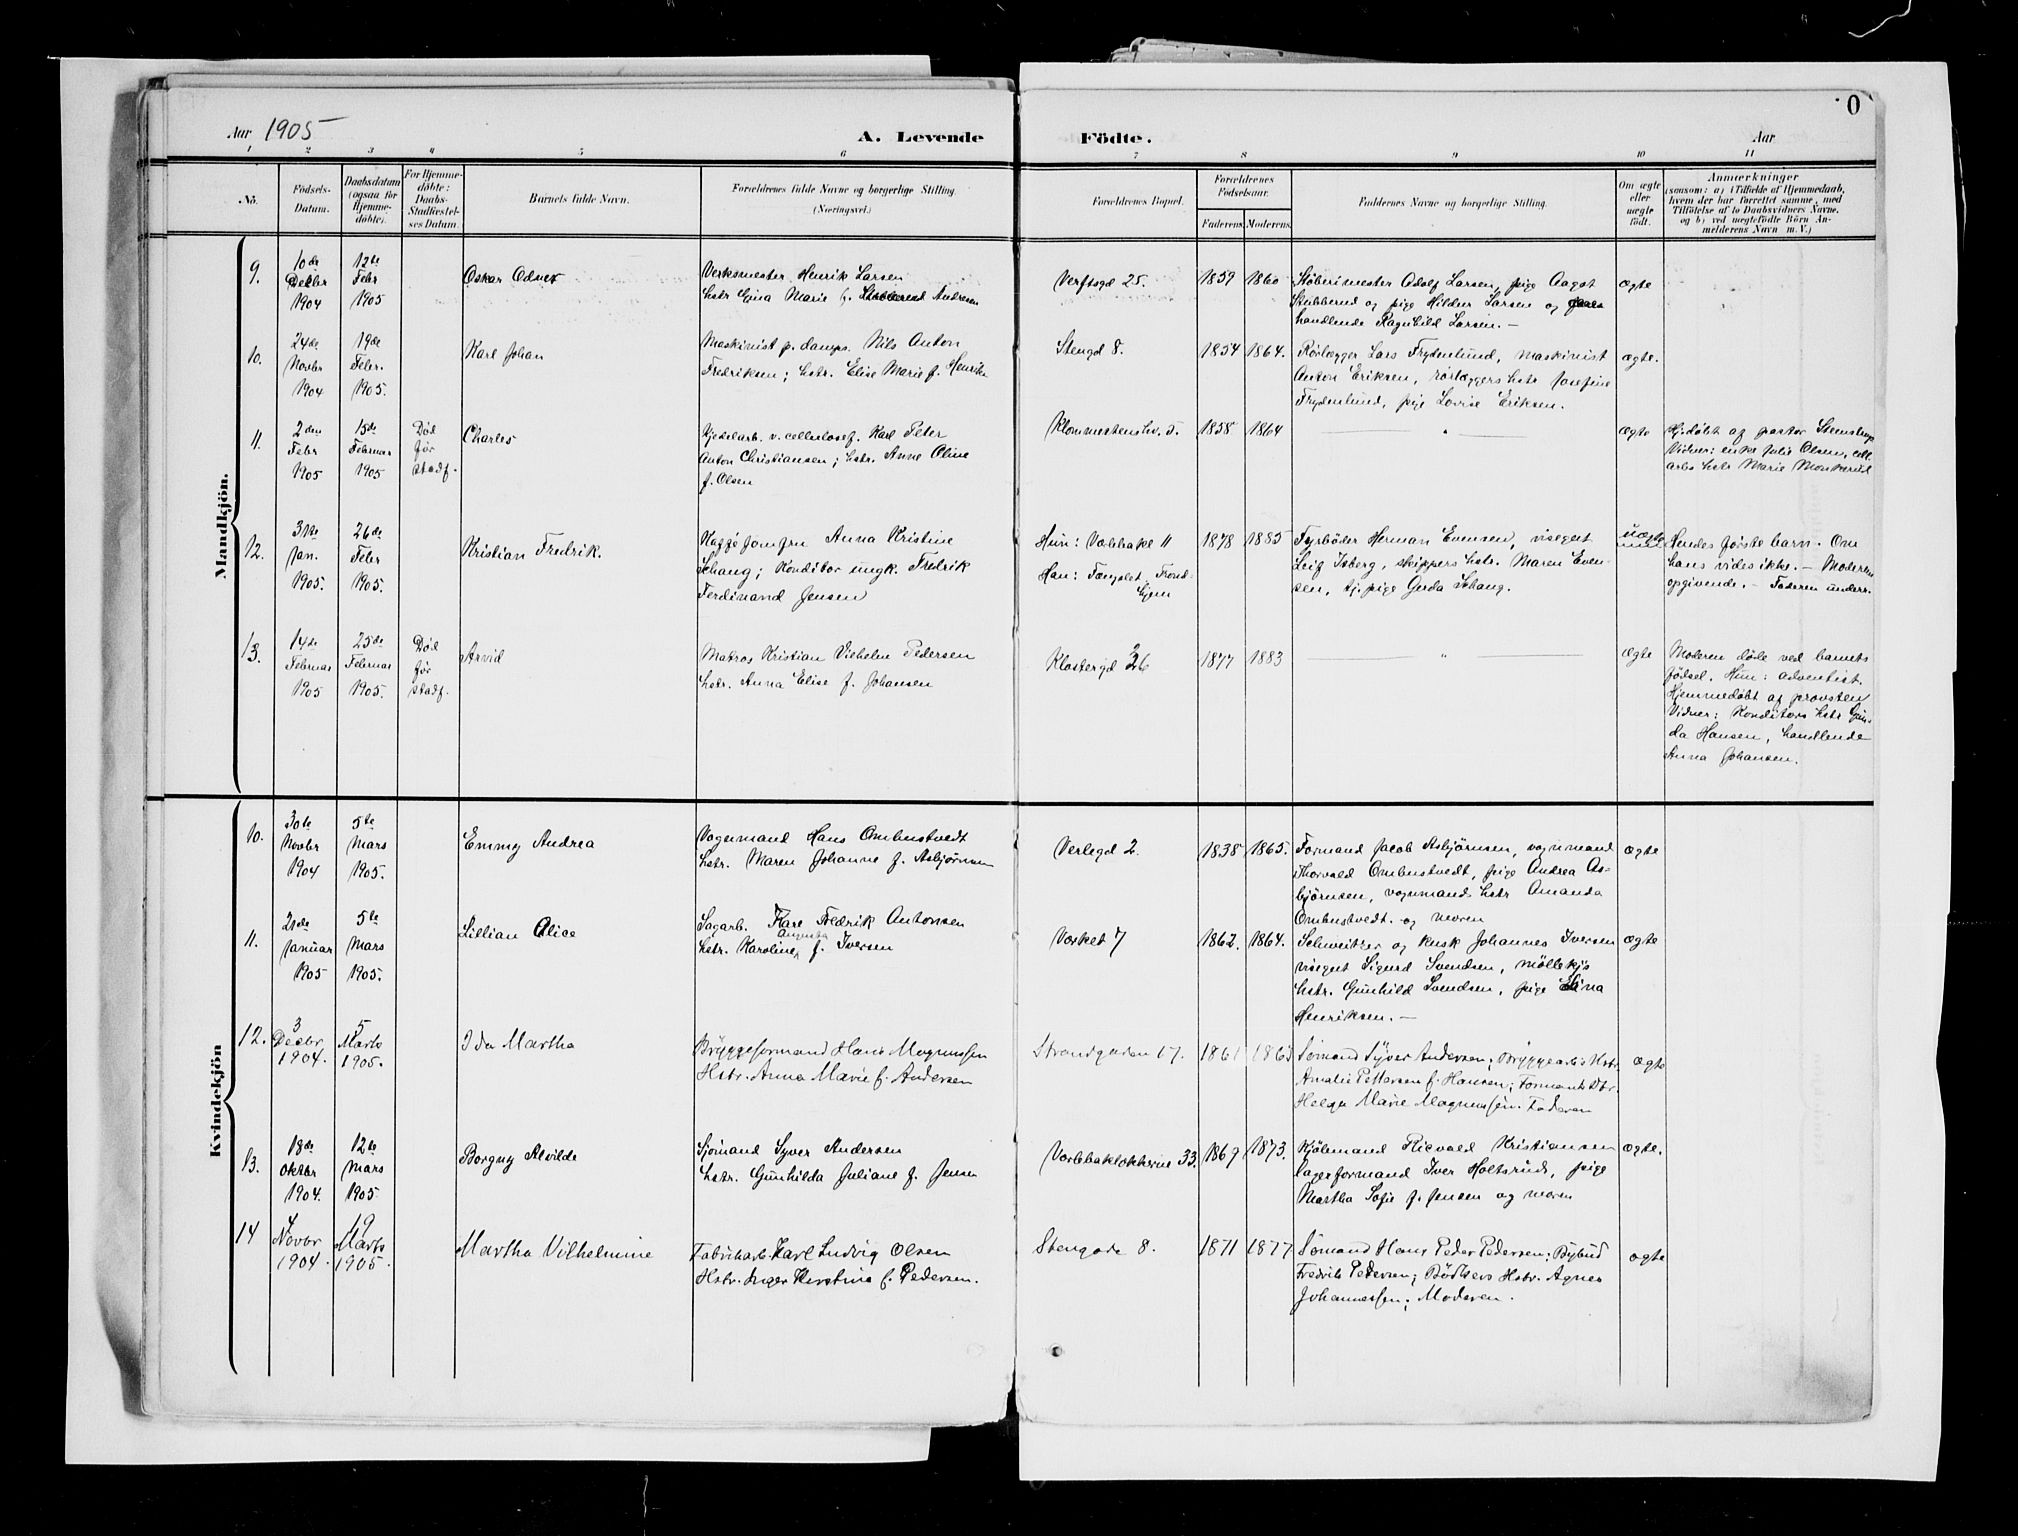 Aar 1905
A. Levende
Födte.
Aar
0
1 2 3 4 5 6 7 8 9 10 11
No.
Födsels-
Datum.
Daabsdatum
(ogsaa for
Hjemme-
döbte).
For Hjemme-
döbte:
Daabs-
Stadfæstel-
ses Datum.
Barnets fulde Navn.
Forældrenes fulde Navne og borgerlige Stilling.
(Næringsvei.)
Forældrenes Bopæl.
Forældrenes
Födselsaar.
Faderens. Moderens.
Faddernes Navne og borgerlige Stilling.
Om ægte
eller
uægte
födt.
Anmærkninger
(saasom: a) i Tilfælde af Hjemmedaab,
hvem der har forrettet samme, med
Tilföielse af to Daabsvidners Navne,
og b) ved uegtefödte Börn An-
melderens Navn m. V.)
Mandkjön.
9.
10de
Decbr
1904
12te
Febr
1905
Oskar
Verksmester Henrik Larsen
hstr Gina Marie f. Andresen
Verftsgd 25.
1859
1860
Støberimester Adolf Larsen, pige Aagot
Stubberud og pige Hildur Larsen og
handlende Ragnhild Larsen. —
ægte
10.
24de
Novbr
1904
19de
Febr.
1905.
Karl Johan
Maskinist p. damps. Nils Anton
Fredriksen; hstr. Elise Marie f. Henriks
Stengd 8.
1854
1864.
Rørlægger Lars Frydenlund, maskinist
Anton Eriksen, rørlæggers hstr Josefine
Frydenlund, pige Lovise Eriksen.
ægte.
11.
2den
Febr
1905
15de
Februar
1905
Død
før
stadf.
Charles
Kjedelarb. v. cellulosef. Karl Peter
Anton Christiansen; hstr. Anne Oline
f. Olsen
Klommestenshv. 5.
1858
1864
— " —
ægte
Hj.døbt af pastor Stenstrup
Vidner: enke Julie Olsen, cell.
arbs hstr Marie Monkerud
12.
31te
Jan.
1905.
26de
Febr
1905.
Kristian Fredrik.
Kafféjomfru Anna Kristine
Schang; Konditor ungk. Fredrik
Ferdinand Jensen
Hun: Værbake 11
Han: Fængslet, Trond-
hjem
1878
1885
Fyrbøder Herman Evensen, visegut
Leif Isberg, skippers hstr. Maren Even-
sen, tj. pige Gerda Schang.
uægte
Hendes første barn. Om
hans vides ikke. — Moderen
opgivende. — Faderen unders.
13.
14de
Februar
1905
25de
Februar
1905.
Død
før
stadf.
Arvid
Matros Kristian Vilhelm Pedersen
hstr. Anna Elise f. Johansen
Klostergd 26
1877
1883
— " —
ægte
Moderen døde ved barnets
fødsel. Hun: adventist.
Hjemmedøbt af provsten
Vidner: Konditors hstr Gun-
da Hansen, handlende
Anna Johansen.
Kvindekjön
10.
30te
Novbr
1904
5te
Mars
1905.
Emmy Andrea
Vognmand Hans Ombustvedt
hstr. Maren Johanne f. Asbjørnsen
Verlegd 2.
1838
1865.
Formand Jacob Asbjørnsen, vognmand
Thorvald Ombustvedt, pige Andrea As-
bjørnsen, vognmands hstr Amanda
Ombustvedt. og moren
ægte
11.
Januar
1905
5te
Mars
1905.
Lillian Alice
Sagarb. Karl Fredrik Antonsen
hstr. Karoline Augusta f. Iversen
Værket 7
1862.
1864.
Schweitzer og kusk Johannes Iversen
visegut Sigurd Svendsen, møllekjs
hstr. Gunhild Svendsen, pige
Henriksen. —
ægte
12.
3
Decbr
1904.
5
Marts
1905.
Ida Martha
Bryggeformand Hans Magnussen
Hstr. Anna Marie f. Andersen
Strandgaden 17.
1861
Sømand Syver Andersen; Bryggearb's Hstr.
Amalie Pettersen f. Hansen; Formands Dtr.
Helga Marie Magnussen. Faderen
ægte
13.
18de
Oktbr
1904.
12te
Mars
1905.
Borgny Alvilde
Sjømand Syver Andersen
hstr. Gunhilda Juliane f. Jensen
Værbbakløkkerne 33.
1869
1873.
Kjølemand Rievald Kristiansen
lageformand Iver Holtsrud, pige
Martha Sofie f. Jensen og moren
ægte.
14
4
Novbr
1904.
19
Marts
1905.
Martha Vilhelmine
Fabrikarb. Karl Ludvig Olsen
Hstr. Inger Kirstine f. Pedersen.
Stengade 8.
1871
1877
Sømand Hans Peder Pedersen; Bybud
Fredrik Pedersen; Bødkers Hstr. Agnes
Johannessen; Moderen.
ægte